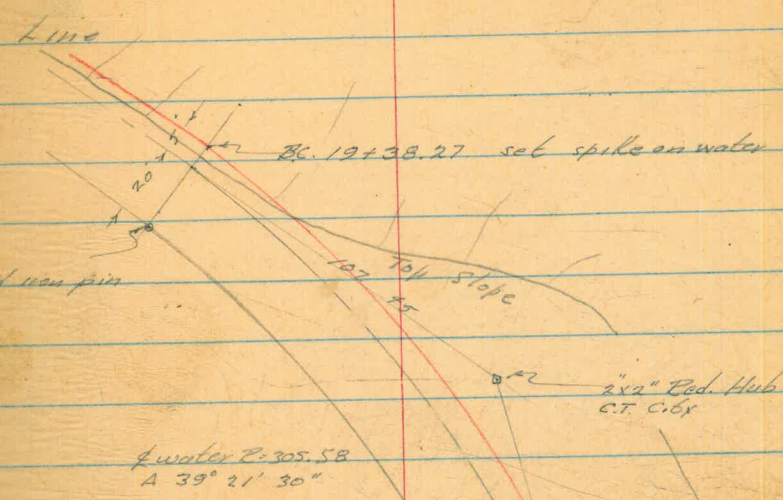 Line
BC. 19+38.27 set spike on water
20'
iron pin
Top Slope
107.45
2"x2" Red. Hub
C.T. C.6x
℄ water R=305.58
Δ 39° 21' 30"